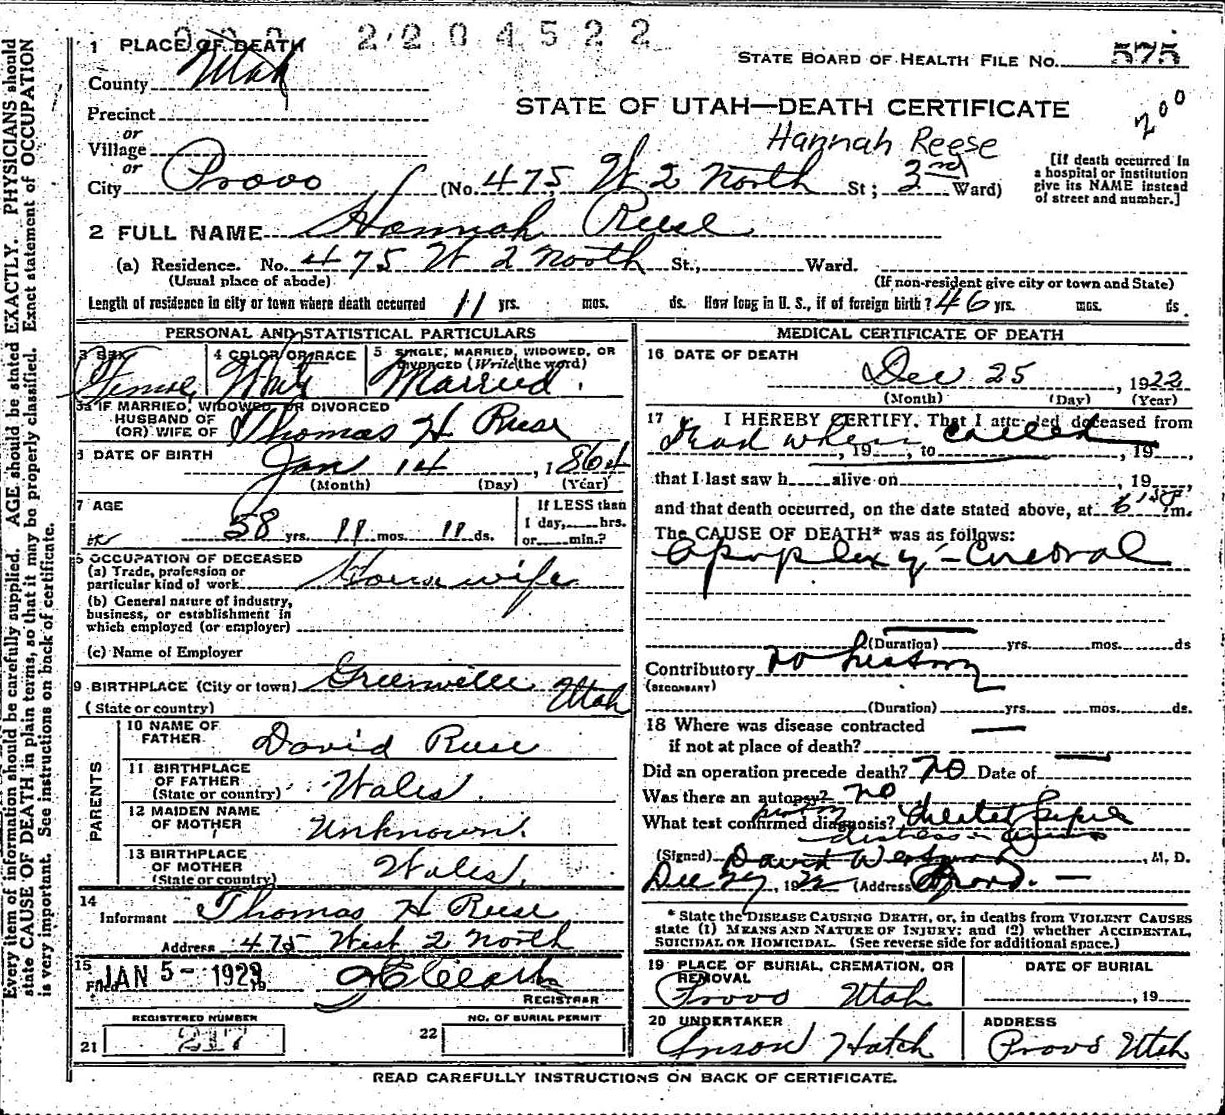 2204522
1 PLACE OF DEATH
County Utah
STATE BOARD OF HEALTH FILE NO. 575
Precinct
STATE OF UTAH—DEATH CERTIFICATE
200
or
Village
Hannah Reese
or
City Provo (No. 475 W 2 North St; 3rd Ward)
[If death occurred in
a hospital or institution
give its NAME instead
of street and number.]
2 FULL NAME Hannah Reese
(a) Residence. No. 475 W 2 North St., Ward.
(Usual place of abode) (If non-resident give city or town and State)
Length of residence in city or town where death occurred 11 yrs. mos. ds. How long in U. S., if of foreign birth? 46 yrs. mos. ds.
PERSONAL AND STATISTICAL PARTICULARS
3 SEX 4 COLOR OR RACE 5 SINGLE, MARRIED, WIDOWED, OR
DIVORCED (Write the word)
Female White Married.
3a IF MARRIED, WIDOWED, OR DIVORCED
HUSBAND OF
(OR) WIFE OF Thomas H Reese
6 DATE OF BIRTH Jan 14, 1864
(Month) (Day) (Year)
7 AGE If LESS than
1 day, hrs.
58 yrs. 11 mos. 11 ds. or min.?
8 OCCUPATION OF DECEASED
(a) Trade, profession or
particular kind of work Housewife
(b) General nature of industry,
business, or establishment in
which employed (or employer)
(c) Name of Employer
9 BIRTHPLACE (City or town) Greenville Utah
(State or country)
PARENTS
10 NAME OF
FATHER David Reese
11 BIRTHPLACE
OF FATHER
(State or country) Wales.
12 MAIDEN NAME
OF MOTHER Unknown.
13 BIRTHPLACE
OF MOTHER
(State or country) Wales.
14
Informant Thomas H Reese
Address 475 West 2 North
15
Filed JAN 5 - 1923
REGISTRAR
REGISTERED NUMBER NO. OF BURIAL PERMIT
21 217 22
MEDICAL CERTIFICATE OF DEATH
16 DATE OF DEATH
Dec 25, 1922
(Month) (Day) (Year)
17 I HEREBY CERTIFY, That I attended deceased from
Dead when called, 19, to, 19
that I last saw h alive on, 19
and that death occurred, on the date stated above, at 6 m.
The CAUSE OF DEATH* was as follows:
Apoplexy - Cerebral
(Duration) yrs. mos. ds
Contributory no history
(SECONDARY)
(Duration) yrs. mos. ds.
18 Where was disease contracted
if not at place of death?
Did an operation precede death? no Date of
Was there an autopsy? no
What test confirmed diagnosis?
(Signed) David Westwood, M. D.
Dec 27, 1922 (Address Provo. —
* State the DISEASE CAUSING DEATH, or, in deaths from VIOLENT CAUSES
state (1) MEANS AND NATURE OF INJURY; and (2) whether ACCIDENTAL,
SUICIDAL OR HOMICIDAL. (See reverse side for additional space.)
19 PLACE OF BURIAL, CREMATION, OR
REMOVAL DATE OF BURIAL
Provo Utah, 19
20 UNDERTAKER ADDRESS
Anson Hatch Provo Utah
READ CAREFULLY INSTRUCTIONS ON BACK OF CERTIFICATE.
Every item of information should be carefully supplied. AGE should be stated EXACTLY. PHYSICIANS should
state CAUSE OF DEATH in plain terms, so that it may be properly classified. Exact statement of OCCUPATION
is very important. See instructions on back of certificate.